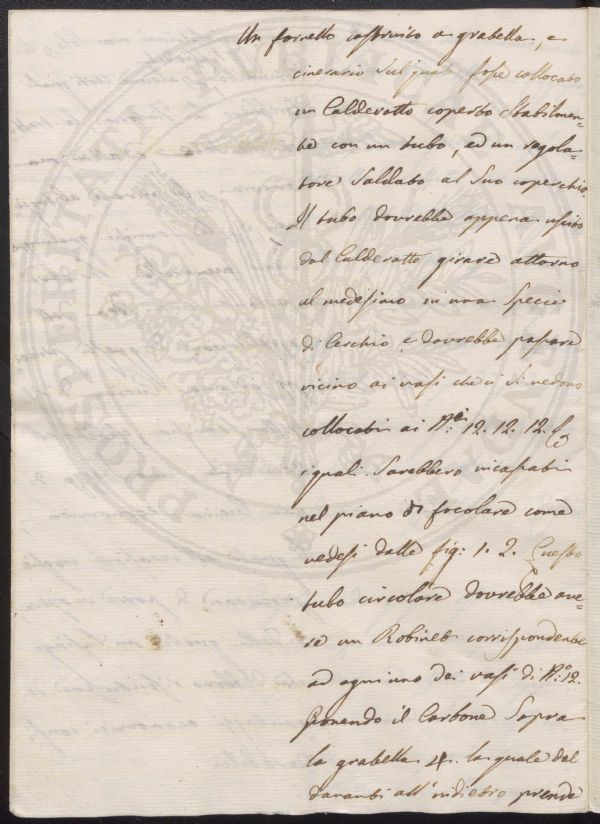 Un fornello costruito a grabella, e
cinerario sul quale fosse collocato
un Calderotto coperto stabilmen-
te con un tubo, ed un regola-
tore saldato al suo coperchio.
Il tubo dovrebbe appena uscito
dal Calderotto girare attorno
al medesimo in una specie
di Cerchio e dovrebbe passare
vicino ai vasi che ci si vedono
collocati ai N.i 12. 12. 12.
i quali sarebbero incassati
nel piano di focolare come
vedesi dalle fig: 1. 2. Questo
tubo circolare dovrebbe ave-
re un Robinet corrispondente
ad ogniuno dei vasi di N.o 12.
Ponendo il Carbone sopra
la grabella 4. la quale dal
davanti all'indietro prende
PROSPERITATI PUBLICAE